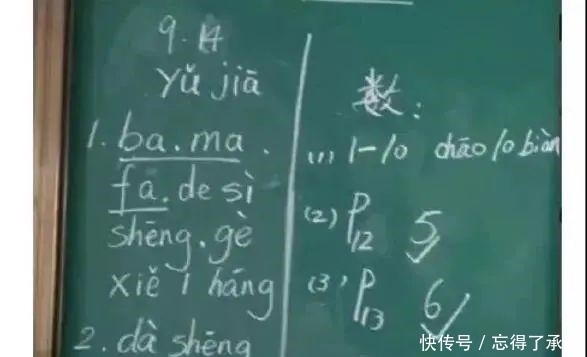 9.14
yǔ jiā
1. ba. ma.
fa. de sì
shēng. gè
xiě 1 háng
2. dà shēng
数:
(1) 1-10 chāo 10 biàn
(2) P12 5
(3) P13 6
快传号 / 忘得了承